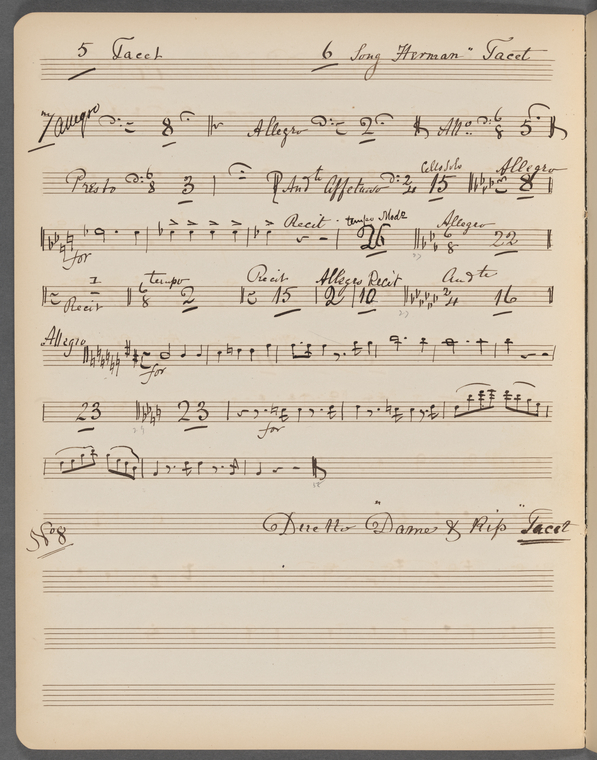 5 Tacet 6 Song "Herman" Tacet
7 Allegro 8 Allegro 2 Allo. 6 8 5
Presto 6 8 3 Andte Affetuoso 2 4 Cello Solo 15 Allegro 8
for Recit tempo Mode 26 Allegro 6 8 22
1 Recit tempo 6 8 2 Recit 15 Allegro 2 Recit 10 Andte 2 4 16
Allegro for
23 23 for
No 8 Duetto "Dame & Rip" Tacet